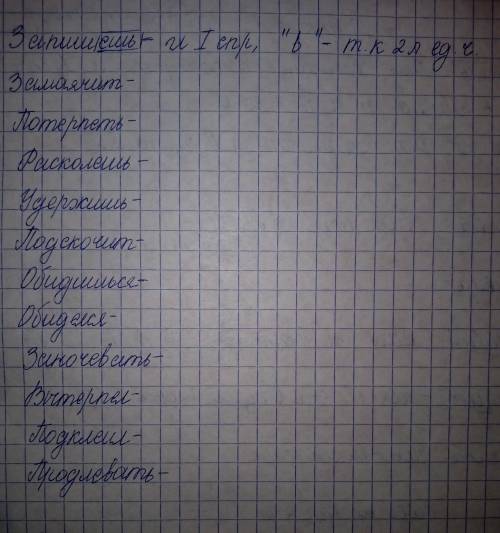 Запишешь - гл I спр, "ь" - т.к 2л ед.ч.
Замаячит -
Потерпеть -
Расколешь -
Удержишь -
Подскочит -
Обидишься -
Обиделся -
Заночевать -
Вытерпел -
Подклеил -
Продлевать -